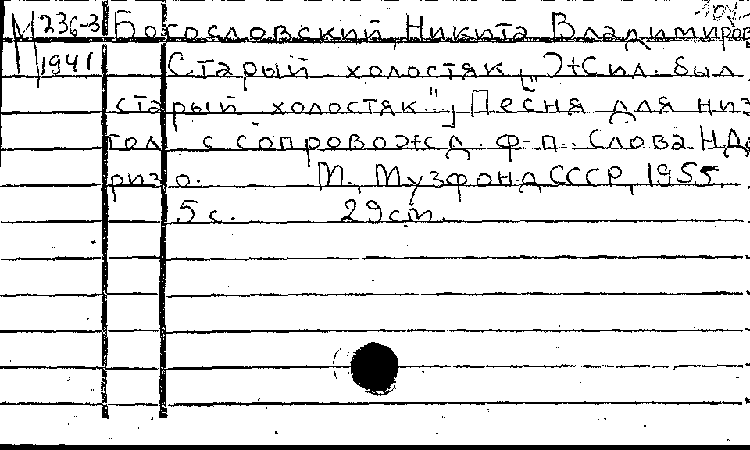 М 236-3 Богословский, Никита Владимиров
1941 Старый холостяк, „Жил был
старый холостяк", Песня для низ
гол с сопровожд. ф-п. Слова
ризо. М., Музфонд СССР, 1955.
5 с. 29 см.